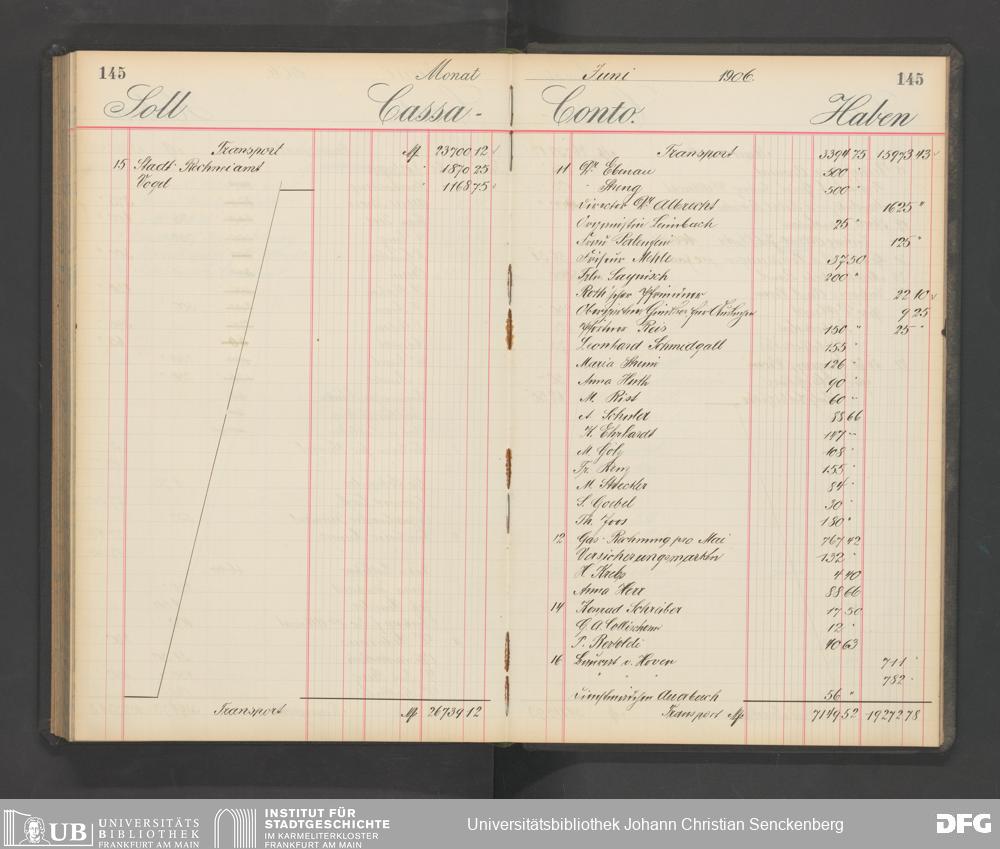 145
Monat
Soll
Cassa-
Transport M 23700 12
15 Stadt. Rechneiamt " 1870 25
Vogel " 1168 75
Transport M 26739 12
Juni 1906.
145
Conto.
Haben
Transport 3394 75 15973 43
11 Dr. Ebenau 500 "
" 500 "
Director Dr. Albrecht 1625 "
Organistin Laimbach 25 "
Frau 125 "
Friseur Mehle 37 50
Frln. Saynisch 200 "
22 10
9 25
Pförtner Reis 150 " 25 "
Leonhard Schmedgall 155 "
Maria 126 "
Anna Huth 90 "
M. Rist 60 "
A. Schuler 88 66
K. Ehrhardt 147 "
M. Gölz 108 "
Fr. 155 "
M. Strecker 84 "
S. Goebel 30 "
Th. Joos 180 "
12 Gas-Rechnung pro Mai 767 42
Versicherungsmarken 132 "
H. Krebs 4 40
Anna Herr 88 66
14 Konrad Schreiber 17 50
G. A. Collischonn 12 "
P. Bertoldi 40 63
16 v. Hoven 711 "
" " 782 "
Auerbach 56 "
Transport M 7149 52 19272 78
UB UNIVERSITÄTS
BIBLIOTHEK
FRANKFURT AM MAIN
INSTITUT FÜR
STADTGESCHICHTE
IM KARMELITERKLOSTER
FRANKFURT AM MAIN
Universitätsbibliothek Johann Christian Senckenberg
DFG